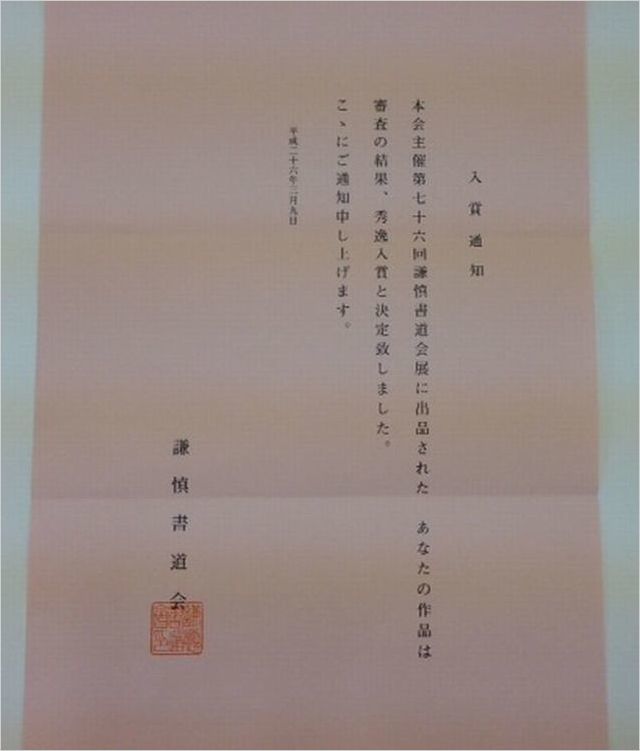 入賞通知
本会主催第七十六回謙慎書道会展に出品された　あなたの作品は
審査の結果、秀逸入賞と決定致しました。
こゝにご通知申し上げます。
平成二十六年三月九日
謙慎書道会